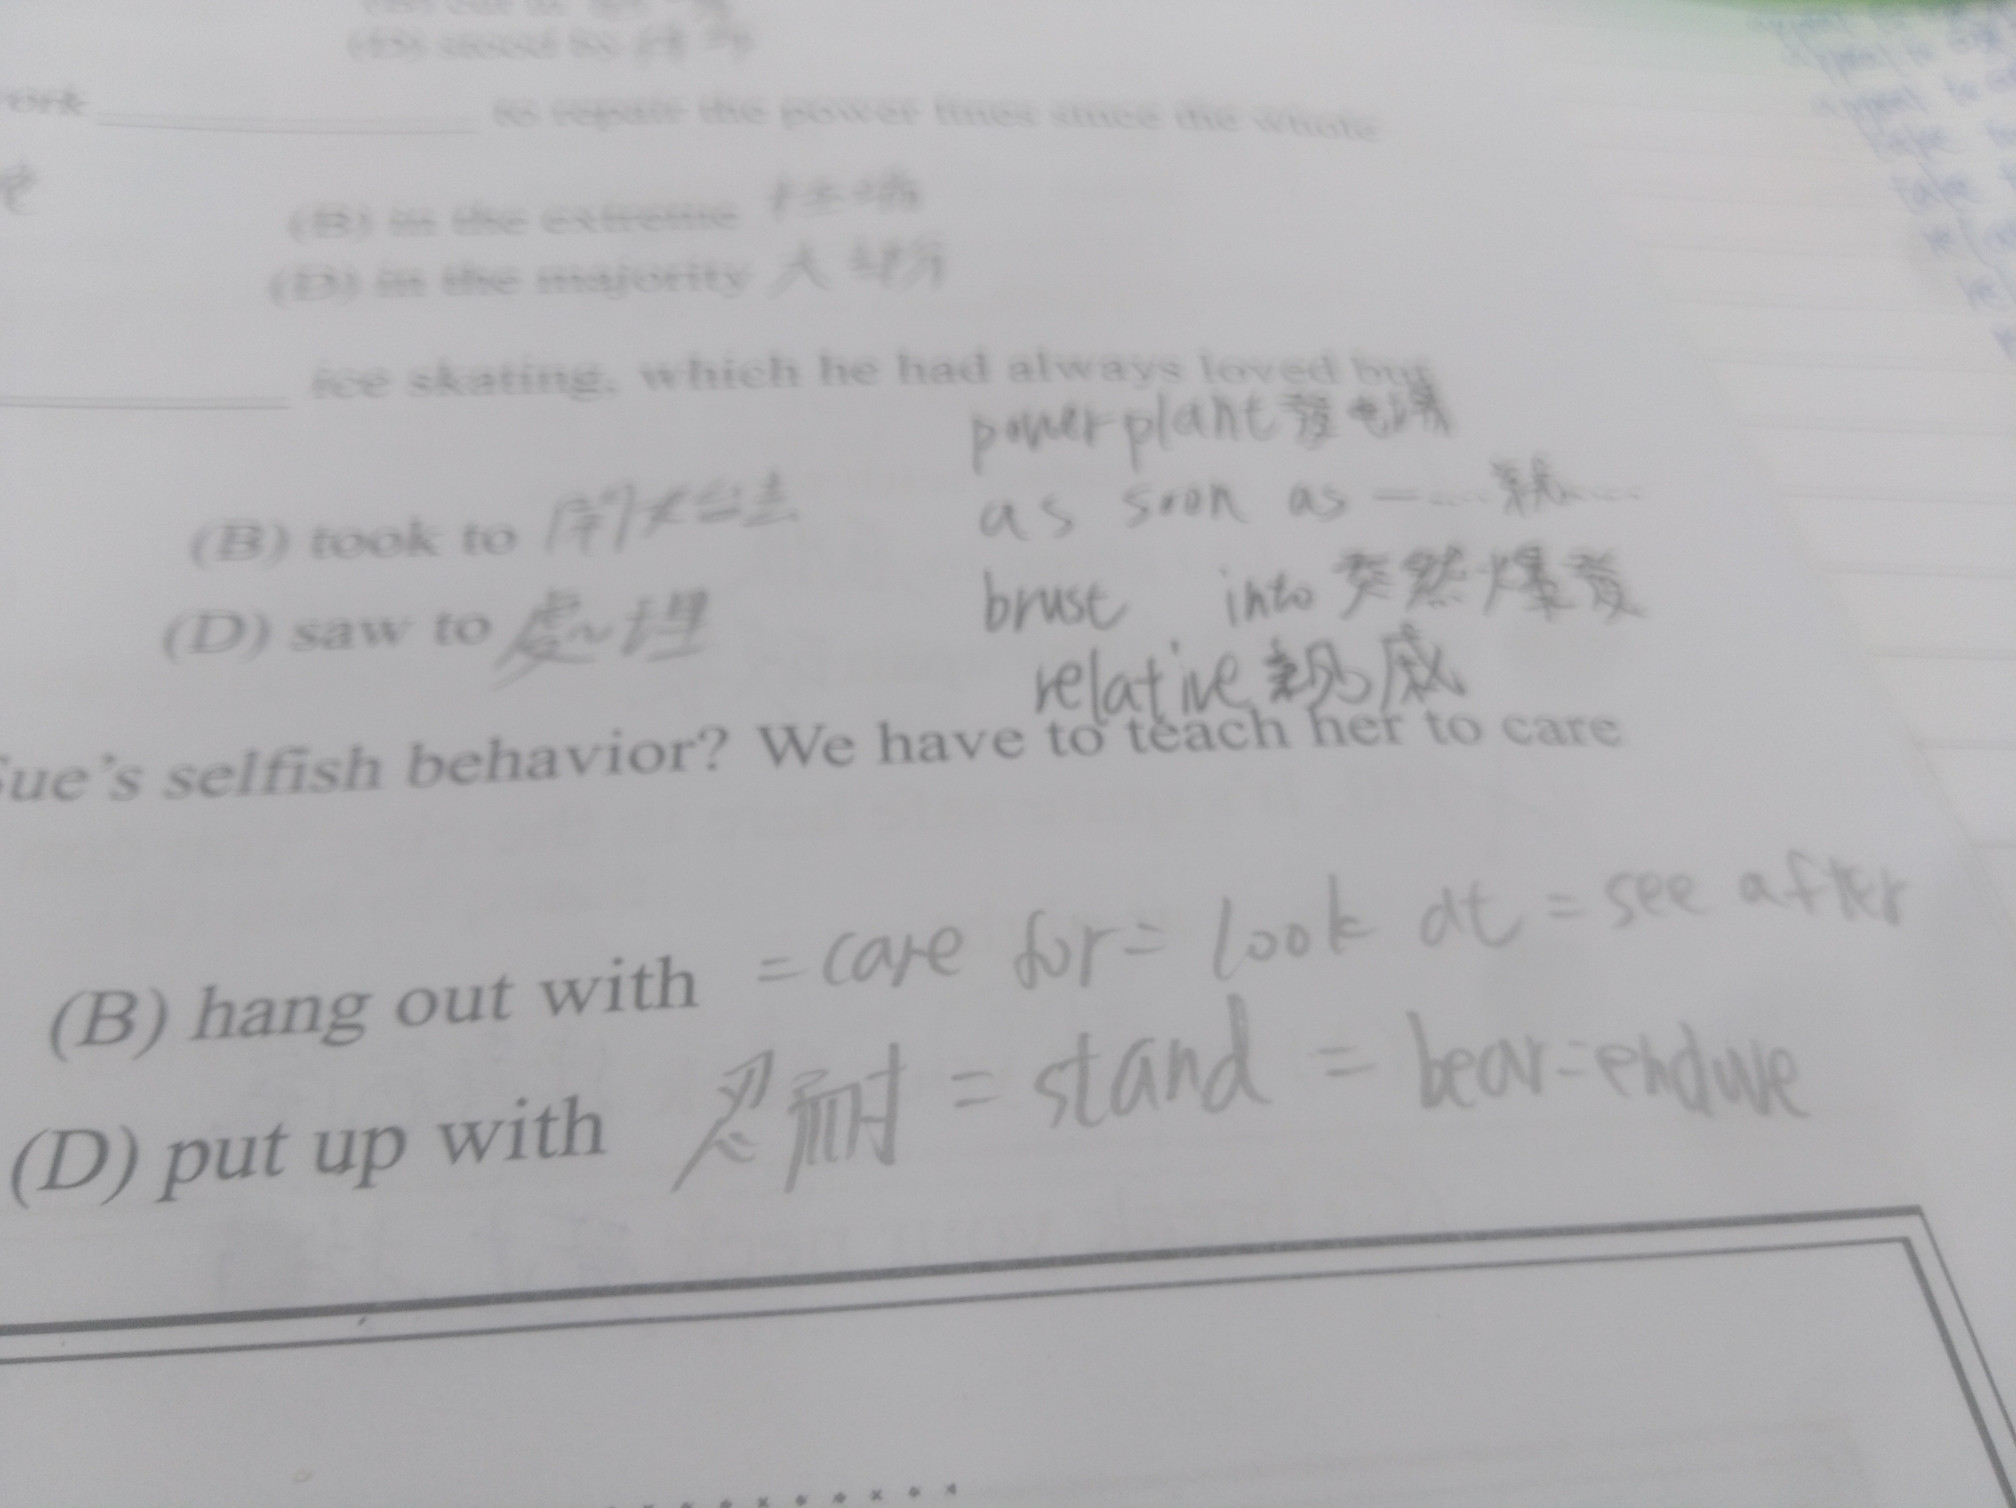 to repair the power lines since the whole
(B) in the extreme
(D) in the majority 大部分
ice skating, which he had always loved but
power plant 發電課
as soon as 一......就......
(B) took to 開始去
(D) saw to 處理
brust into 突然爆發
relative 親戚
Sue's selfish behavior? We have to teach her to care
(B) hang out with = care for = look at = see after
(D) put up with 忍耐 = stand = bear = endure